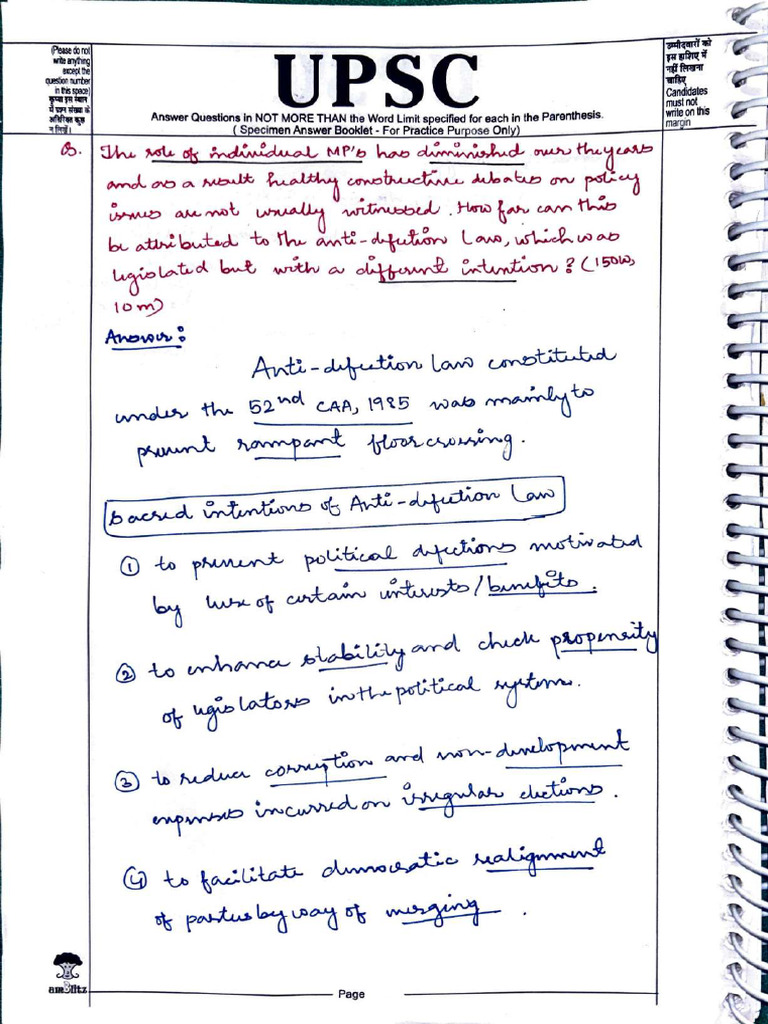 (Please do not
write anything
except the
question number
in this space)
कृपया इस स्थान
में प्रश्न संख्या के
अतिरिक्त कुछ
न लिखें।
UPSC
Answer Questions in NOT MORE THAN the Word Limit specified for each in the Parenthesis.
( Specimen Answer Booklet - For Practice Purpose Only)
उम्मीदवारों को
इस हाशिए में
नहीं लिखना
चाहिए
Candidates
must not
write on this
margin
Q. The role of individual MP's has diminished over the years
and as a result healthy constructive debates on policy
issues are not usually witnessed. How far can this
be attributed to the anti-defection law, which was
legislated but with a different intention? (150w,
10m)
Answer:
Anti-defection law constituted
under the 52nd CAA, 1985 was mainly to
prevent rampant floor crossing.
Sacred intentions of Anti-defection Law
① to prevent political defections motivated
by lure of certain interests/benefits.
② to enhance stability and check propensity
of legislators in the political system.
③ to reduce corruption and non-development
expenses incurred on irregular elections.
④ to facilitate democratic realignment
of parties by way of merging.
amBlitz
Page